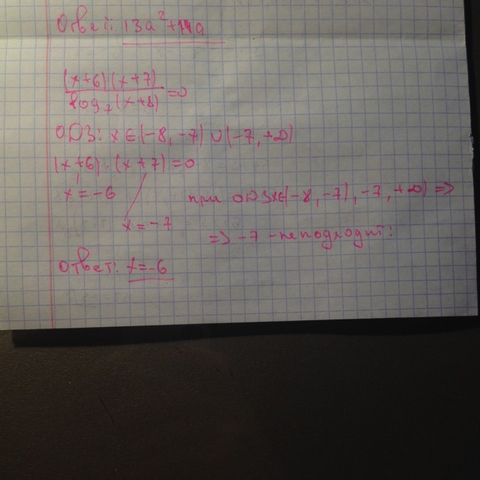 Ответ: 13a²+14a
(x+6)(x+7)
log₇(x+8) =0
ОДЗ: x∈(-8,-7)∪(-7,+∞)
(x+6)·(x+7)=0
x=-6
при ОДЗ x∈(-8,-7),-7,+∞) =>
x=-7
=> -7 - не подходит:
Ответ: x=-6